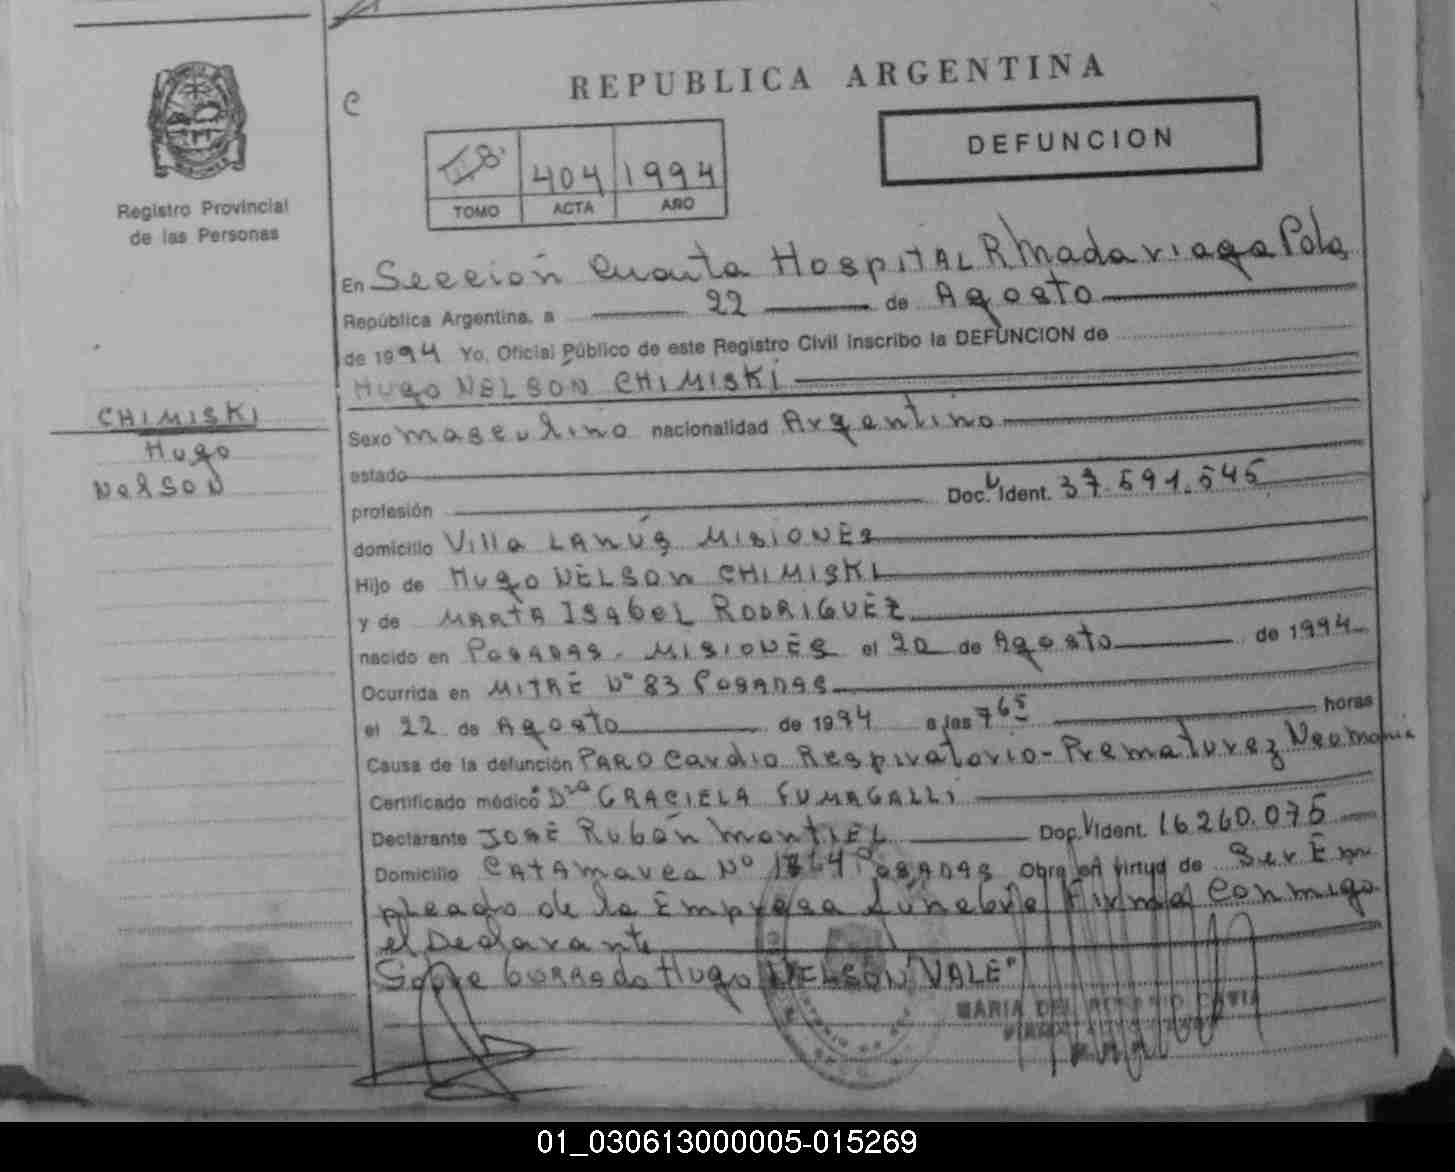 C
REPUBLICA ARGENTINA
DEFUNCION
404 1994
TOMO ACTA AÑO
Registro Provincial
de las Personas
En Sección Cuarta Hospital R Madariaga Pdas
República Argentina, a 22 de Agosto
de 1994 Yo, Oficial Público de este Registro Civil inscribo la DEFUNCION de
Hugo NELSON CHIMISKI
CHIMISKI
Hugo
Nelson
Sexo masculino nacionalidad Argentino
estado
profesión Doc. Ident. 37.591.545
domicilio Villa LANÚS MISIONES
Hijo de Hugo NELSON CHIMISKI
y de MARTA ISABEL RODRIGUEZ
nacido en POSADAS - MISIONES el 20 de Agosto de 1994
Ocurrida en MITRE Nº 83 POSADAS
el 22 de Agosto de 1994 a las 7 horas
Causa de la defunción PARO Cardio Respiratorio - Prematurez
Certificado médico Dra GRACIELA FUMAGALLI
Declarante JOSÉ Rubén MONTIEL Doc. Ident. 16260.075
Domicilio CATAmarca Nº POSADAS Obra en virtud de Ser Em
pleado de la Empresa Fúnebre Firma Conmigo
el Declarante
Sobre borrado Hugo NELSON "VALE"
MARIA DEL
01_030613000005-015269